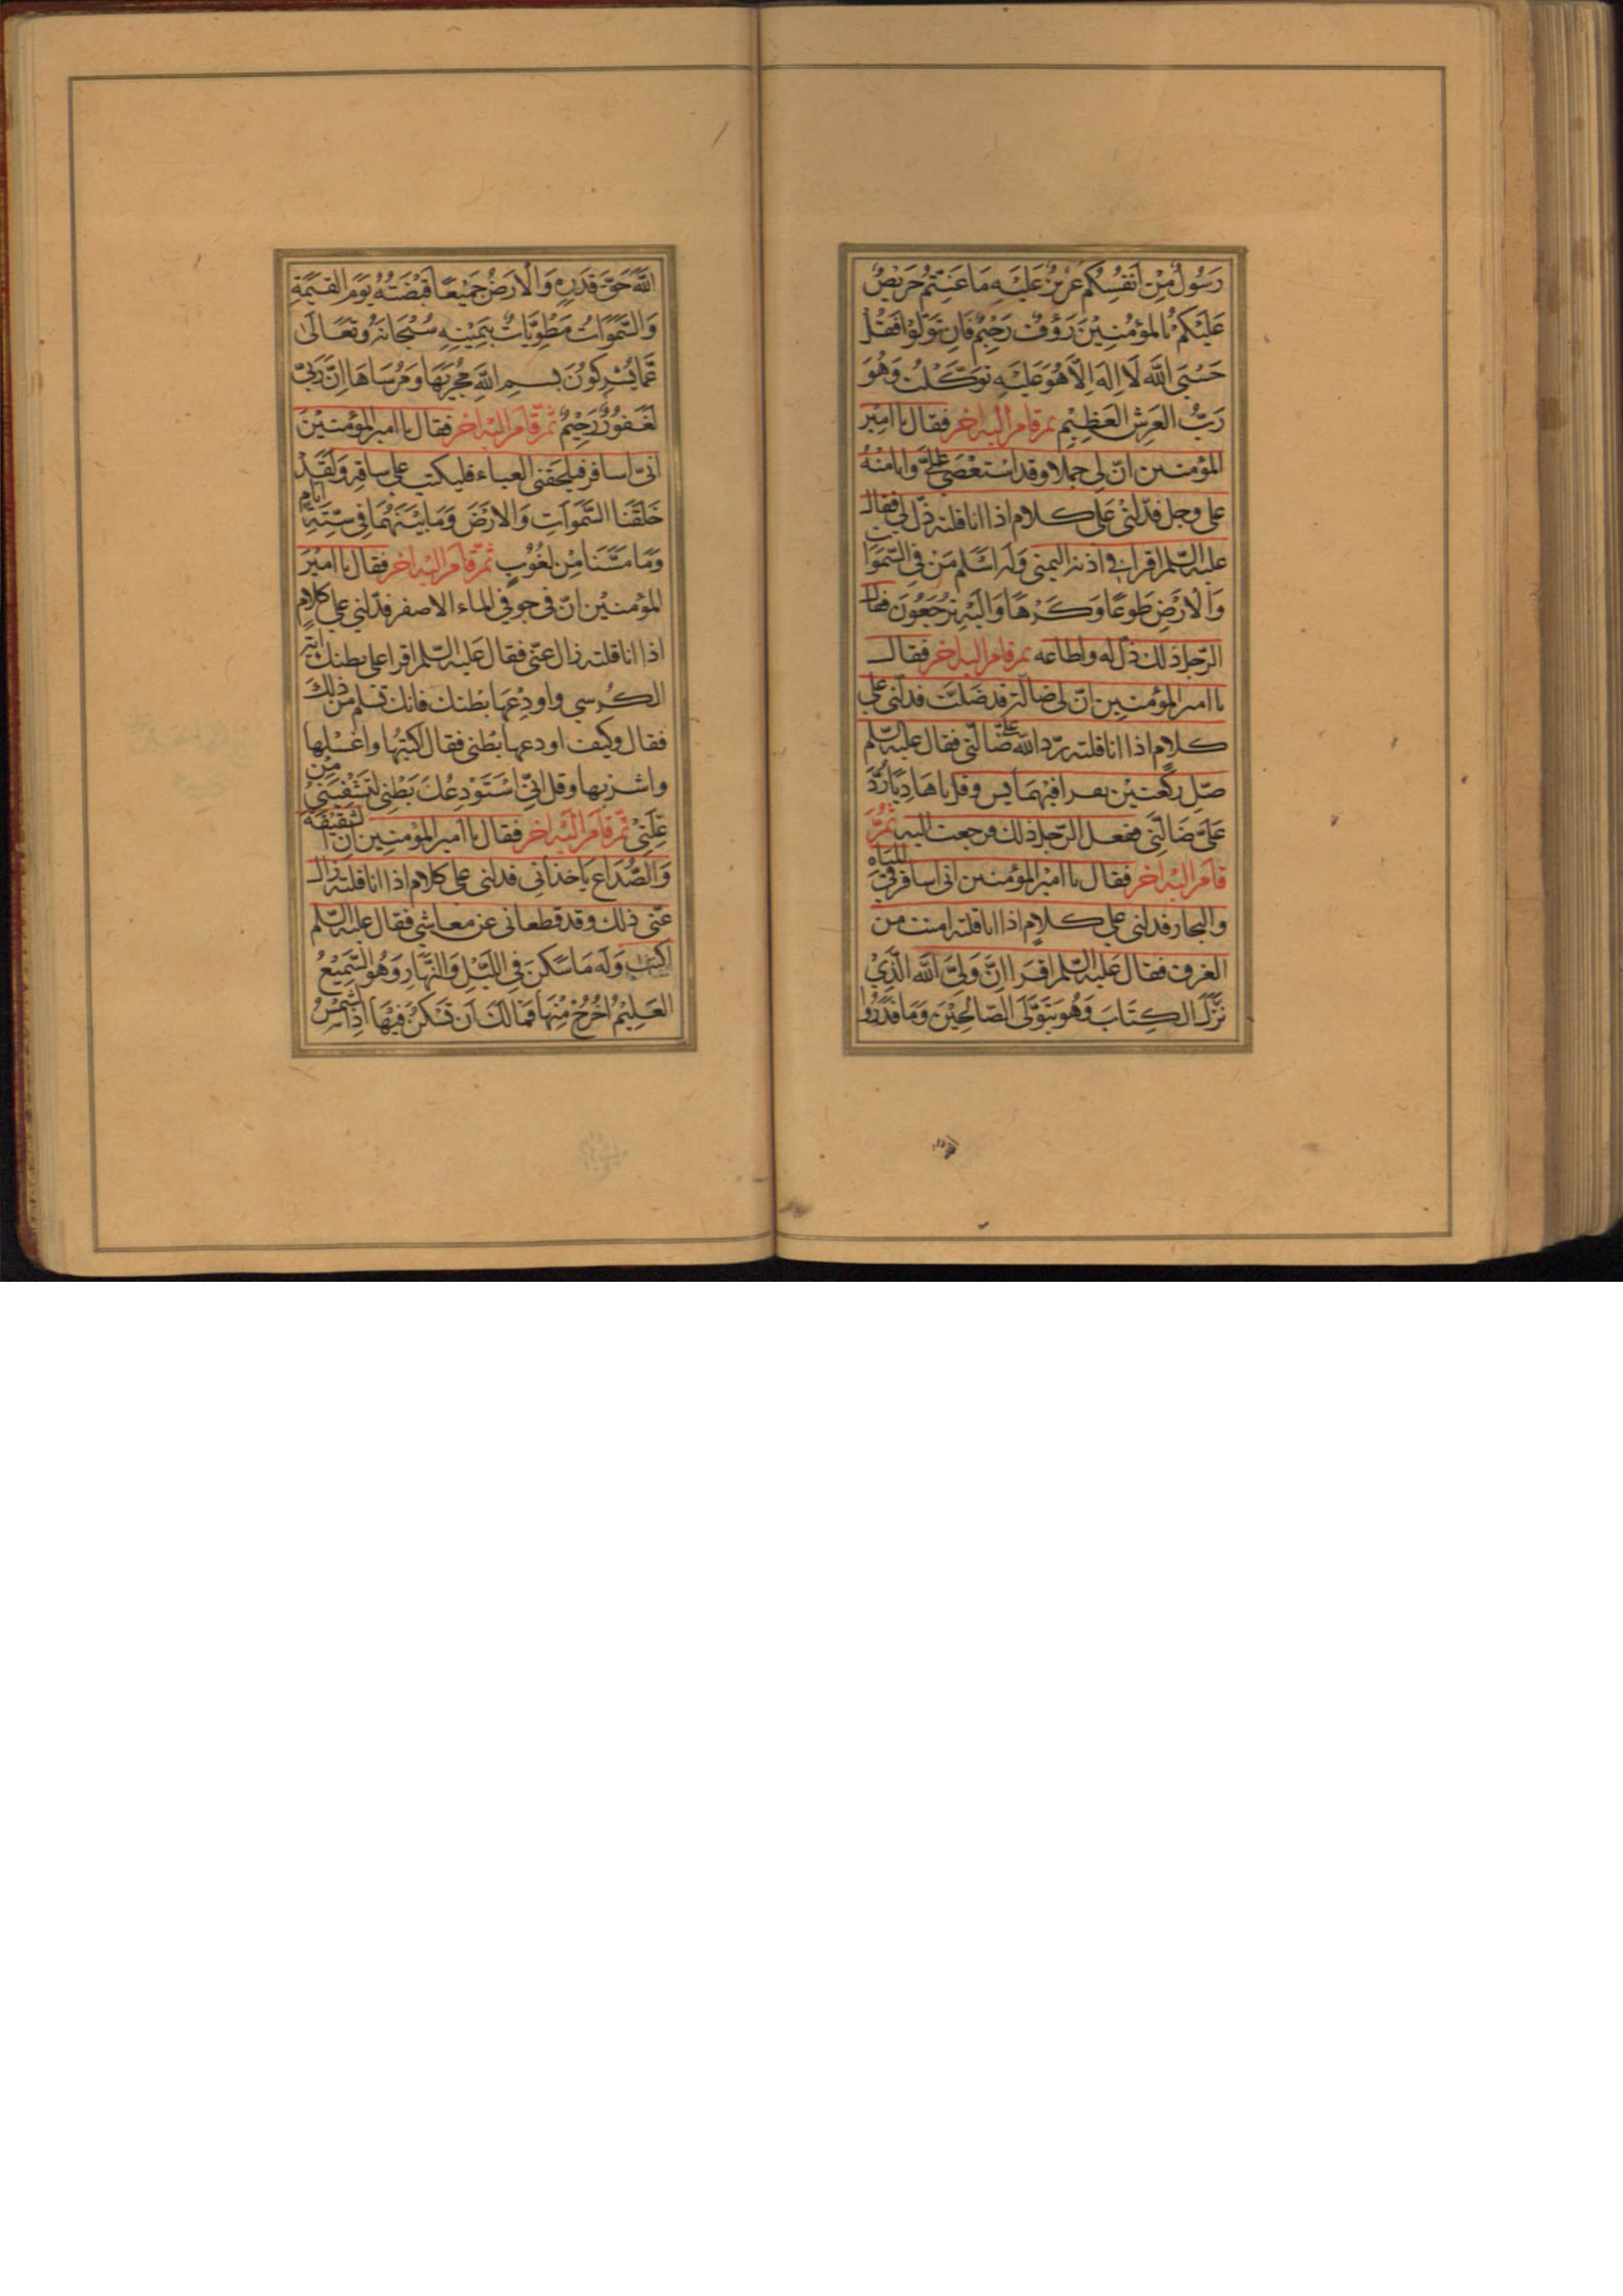 رَسُولٌ مِنْ اَنْفُسِكُمْ عَزِيزٌ عَلَيْهِ مَا عَنِتُّمْ حَرِيصٌ
عَلَيْكُمْ بِالْمُؤْمِنِيْنَ رَؤُفٌ رَحِيْمٌ فَاِنْ تَوَلَّوْا فَقُلْ
حَسْبِيَ اللّٰهُ لَا اِلٰهَ اِلَّا هُوَ عَلَيْهِ تَوَكَّلْتُ وَهُوَ
رَبُّ الْعَرْشِ الْعَظِيْمِ ثم قام اليه اخر فقال يا امير
المؤمنين انّ لي جملا وقد استعصى عليّ وانا منه
على وجل فدلّني على كلام اذا انا قلته ذلّ لي فقال
عليه السّلم اقرا في اذنه اليمنى وَلَهُ اَسْلَمَ مَنْ فِي السَّمٰوَاتِ
وَالْاَرْضِ طَوْعًا وَكَرْهًا وَاِلَيْهِ تُرْجَعُونَ فقال
الرّجل ذلك ذلّ له واطاعه ثم قام اليه اخر فقال
يا امير المؤمنين انّ لي ضالّة قد ضلّت فدلّني على
كلام اذا انا قلته ردّ الله عليّ ضالّتي فقال عليه السّلم
صلّ ركعتين تقرا فيهما يس وقل يا هَادِيَ رُدَّ
عَلَيَّ ضَالَّتِي ففعل الرّجل ذلك فرجعت اليه ثمّ
قام اليه اخر فقال يا امير المؤمنين انى اسافر في المياه
والبحار فدلني على كلام اذا انا قلته امنت من
الغرق فقال عليه السّلم اقرا اِنَّ وَلِيِّيَ اللّٰهُ الَّذِيْ
نَزَّلَ الْكِتَابَ وَهُوَ يَتَوَلَّى الصَّالِحِيْنَ وَمَا قَدَرُوا
اللّٰهَ حَقَّ قَدْرِهِ وَالْاَرْضُ جَمِيْعًا قَبْضَتُهُ يَوْمَ الْقِيٰمَةِ
وَالسَّمٰوَاتُ مَطْوِيَّاتٌ بِيَمِيْنِهِ سُبْحَانَهُ وَتَعَالٰى
عَمَّا يُشْرِكُوْنَ بِسْمِ اللّٰهِ مَجْرٰيهَا وَمُرْسَاهَا اِنَّ رَبِّي
لَغَفُوْرٌ رَحِيْمٌ ثُمّ قام اليه اخر فقال يا امير المؤمنين
انّي اسافر فيلحقني العياء فليكتب على ساقه وَلَقَدْ
خَلَقْنَا السَّمٰوَاتِ وَالْاَرْضَ وَمَا بَيْنَهُمَا فِي سِتَّةِ اَيَّامٍ
وَمَا مَسَّنَا مِنْ لُغُوْبٍ ثمّ قام اليه اخر فقال يا امير
المؤمنين انّ في جوفي الماء الاصفر فدلّني على كلام
اذا انا قلته زال عنّي فقال عليه السّلم اقرا على بطنك آية
الكرسي واودعها بطنك فانك تسلم من ذلك
فقال وكيف اودعها بطني فقال اكتبها واغسلها
واشربها وقل انّي اَسْتَوْدِعُكَ بَطْنِي لِتَشْفِيَنِي مِنْ
عِلَّتِي ثمّ قام اليه اخر فقال يا امير المؤمنين انّ الشقيقة
والصّداع ياخذاني فدلني على كلام اذا انا قلته زال
عنّي ذلك وقد قطعاني عن معاشي فقال عليه السّلم
اكتب وَلَهُ مَا سَكَنَ فِي اللَّيْلِ وَالنَّهَارِ وَهُوَ السَّمِيْعُ
الْعَلِيْمُ اُخْرُجْ مِنْهَا فَمَا لَكَ اَنْ تَسْكُنَ فِيْهَا اِذَا الشَّمْسُ